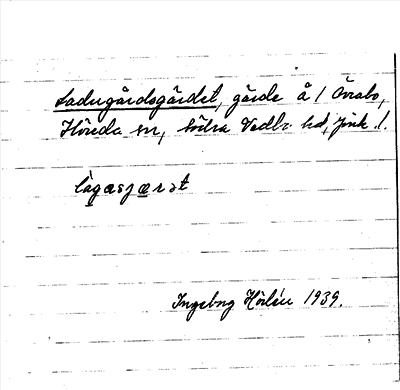 Ladugårdsgärdet, gärde å 1 Övrabo,
Höreda sn, Södra Vedbo hd, Jönk. l.
lagasjærət
Ingeborg Hörlén 1939.